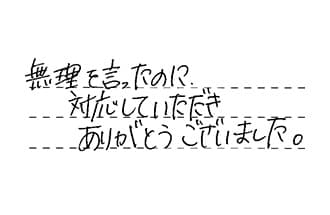 無理を言ったのに、
対応していただき
ありがとうございました。